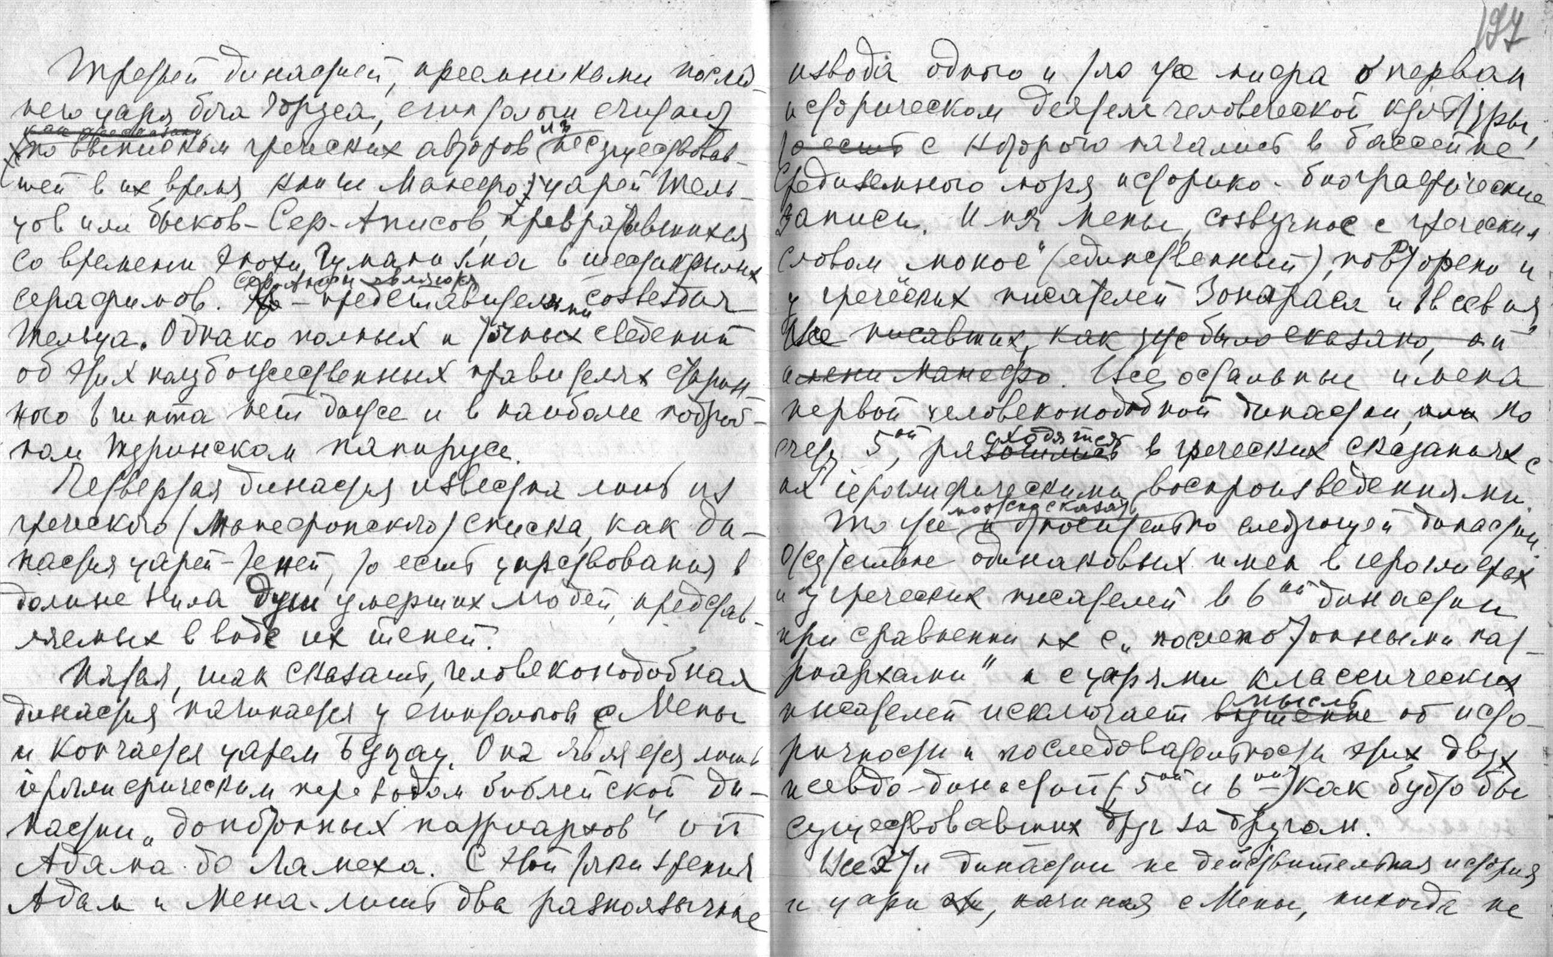 Третьей династией, преемниками послед-
него царя бога Горуса, египтологи считают
как предсказано
по выпискам греческих авторов из несуществовав-
шей в их время книги Манефо, царей Тель-
цов или быков - Сер-Аписов, превратившихся
со времени эпохи Гуманизма в шестикрылых
серафимов. представителями созвездия
Тельца. Однако полных и точных сведений
об этих полубожественных правителях
Египта нет даже и в наиболее подроб-
ном Туринском папирусе.
Четвертая династия известна лишь из
греческого (Манефонского) списка, как ди-
настия царей-теней, то есть царствования в
долине Нила душ умерших людей, представ-
ляемых в виде их теней.
Пятая, так сказать, человекоподобная
династия начинается у египтологов с Мены
и кончается царем Бузау. Она является лишь
иероглифическим переводом библейской ди-
настии „допотопных патриархов" от
Адама до Ламеха. С этой точки зрения
Адам и Мена - лишь два разноязычные
197
извода одного и того же мифа о первом
историческом деятеле человеческой культуры,
то есть с которого начались в бассейне
Средиземного моря историко-биографические
записи. Имя Мены, созвучное с греческим
словом „монос" (единственный), повторено и
у греческих писателей Зонараса и Евсевия
Все писавших, как уже было сказано, от
имени Манефо. Все остальные имена
первой человекоподобной династии, или по
счету 5ой, сходятся в греческих сказаниях с
их иероглифическими воспроизведениями.
можно сказать
То же и относительно следующей династии.
Отсутствие одинаковых имен в иероглифах
и у греческих писателей в 6ой династии
при сравнении их с „послепотопными пат-
риархами" и с царями классических
мысль
писателей исключает об исто-
ричности и последовательности этих двух
псевдо-династий (5ой и 6ой) как будто бы
существовавших друг за другом.
Все эти династии не действительная история
и цари их, начиная с Мены, никогда не